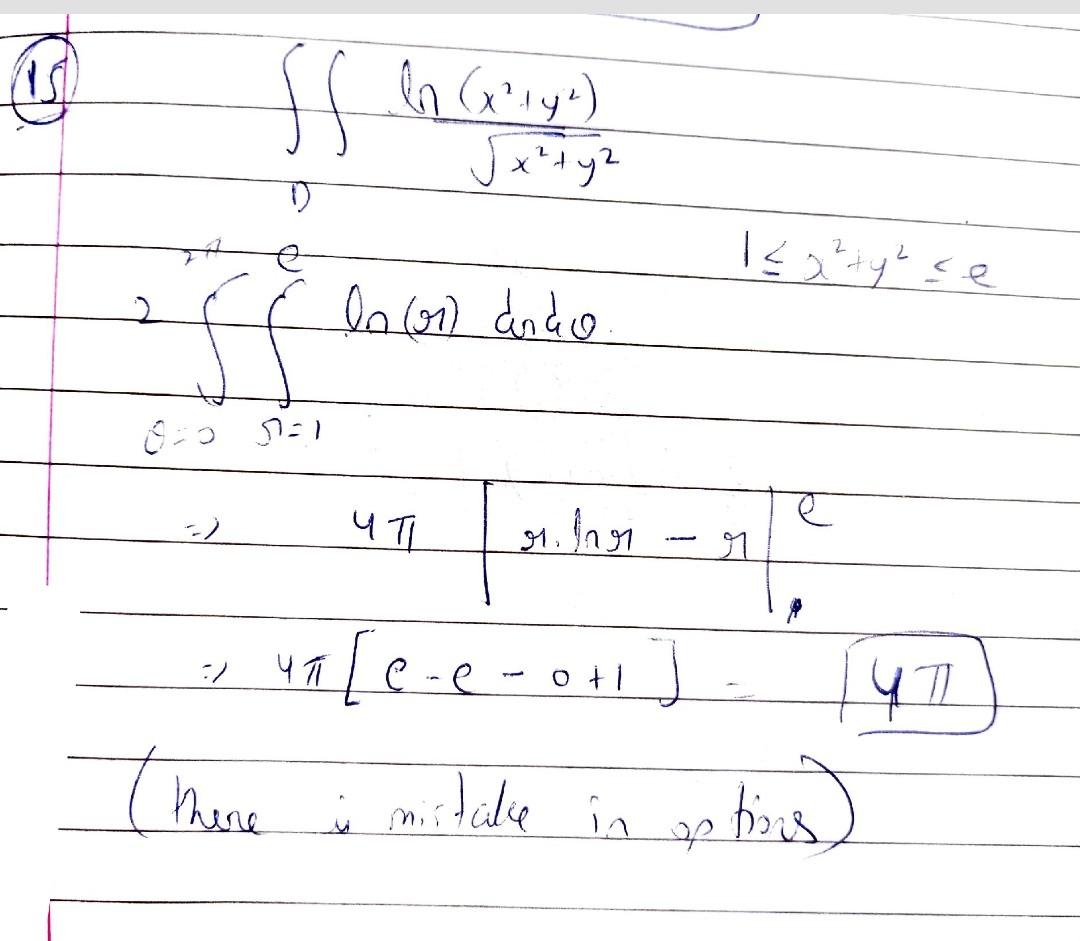 15
∫∫ ln(x²+y²)
√x²+y²
D
1 ≤ x²+y² ≤ e
2π e
2 ∫ ∫ ln(r) dr dθ.
θ=0 r=1
=> 4π | r.lnr - r | e
1
=> 4π [ e - e - 0 + 1 ] = 4π
(there is mistake in options)